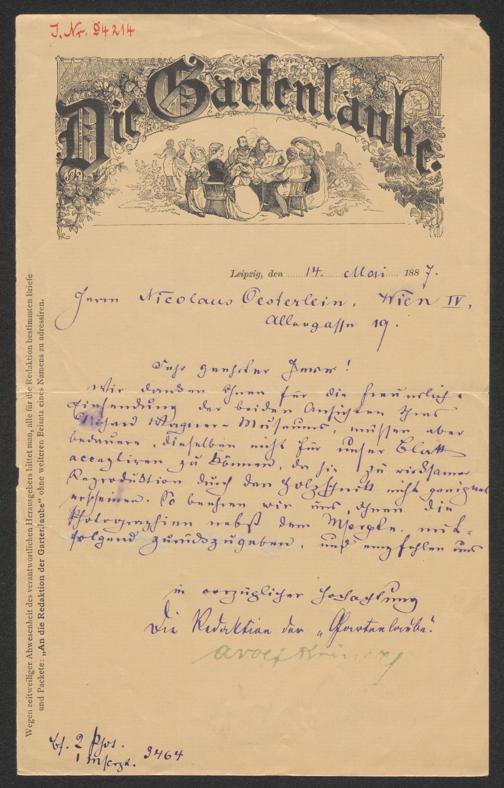 J. Nr. 94214
Die Gartenlaube.
Leipzig, den 14. Mai 1887.
Herrn Nicolaus Oesterlein. Wien IV,
Alleegasse 19.
Sehr geehrter Herr!
Wir danken Ihnen für die freundliche
Einsendung der beiden Ansichten Ihres
Richard Wagner-Museums, müssen aber
bedauern, dieselben nicht für unser Blatt
acceptiren zu können, da sie zu wirksamer
Reproduktion durch den Holzschnitt nicht geeignet
erscheinen. So beehren wir uns, Ihnen die
Photographien nebst dem mit-
folgend zurückzugeben, und empfehlen uns
in vorzüglicher Hochachtung
Die Redaktion der „Gartenlaube".
Adolf Kröner
2 Phot.
1 Mscrpt. 3464
Wegen zeitweiliger Abwesenheit des verantwortlichen Herausgebers bittet man, alle für die Redaktion bestimmten Briefe
und Packete: „An die Redaktion der Gartenlaube" ohne weiteren Beisatz eines Namens zu adressiren.